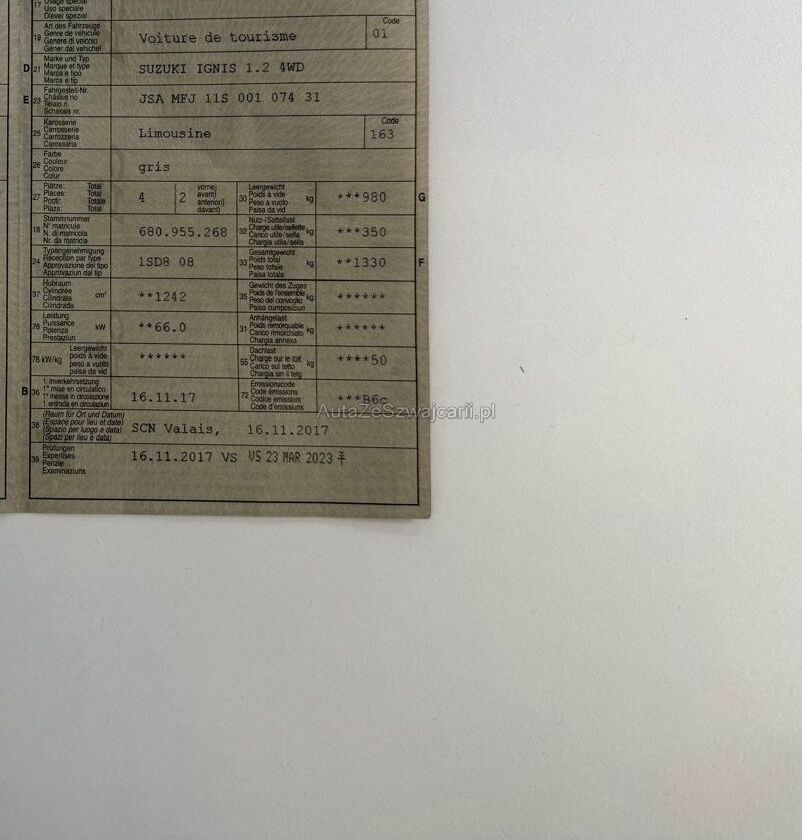 17 Usage spécial
Uso speciale
Diever spezial
19 Art des Fahrzeuges
Genre de véhicule
Genere di veicolo
Gener dal vehichel
Voiture de tourisme
Code
01
D 21 Marke und Typ
Marque et type
Marca e tipo
Marca e tip
SUZUKI IGNIS 1.2 4WD
E 23 Fahrgestell-Nr.
Châssis no
Telaio n.
Schassis nr.
JSA MFJ 11S 001 074 31
25 Karosserie
Carrosserie
Carrozzeria
Carossaria
Limousine
Code
163
26 Farbe
Couleur
Colore
Colur
gris
27 Plätze: Total
Places: Total
Posti: Totale
Plazs: Total
4
2
vorne)
avant)
anteriori)
davant)
30 Leergewicht
Poids à vide
Peso a vuoto
Paisa da vid
kg
***980 G
18 Stammnummer
N° matricule
N. di matricola
Nr. da matricla
680.955.268
32 Nutz-/Sattellast
Charge utile/sellette
Carico utile/sella
Chargia utila/sella
kg
***350
24 Typengenehmigung
Réception par type
Approvazione del tipo
Approvaziun dal tip
1SD8 08
33 Gesamtgewicht
Poids total
Peso totale
Paisa totala
kg
**1330 F
37 Hubraum
Cylindrée
Cilindrata
Cilindrada
cm³
**1242
35 Gewicht des Zuges
Poids de l'ensemble
Peso del convoglio
Paisa cumposiziun
kg
******
76 Leistung
Puissance
Potenza
Prestaziun
kW
**66.0
31 Anhängelast
Poids remorquable
Carico rimorchiato
Chargia annexa
kg
******
78 kW/kg Leergewicht
poids à vide
peso a vuoto
paisa da vid
******
55 Dachlast
Charge sur le toit
Carico sul tetto
Chargia sin il tetg
kg
****50
B 36 1. Inverkehrsetzung
1re mise en circulation
1a messa in circolazione
1. entrada en circulaziun
16.11.17
72 Emissionscode
Code émissions
Codice emissioni
Code d'emissiuns
***B6c
AutaZeSzwajcarii.pl
38 (Raum für Ort und Datum)
(Espace pour lieu et date)
(Spazio per luogo e data)
(Spazi per lieu e data)
SCN Valais, 16.11.2017
39 Prüfungen
Expertises
Perizie
Examinaziuns
16.11.2017 VS VS 23 MAR 2023